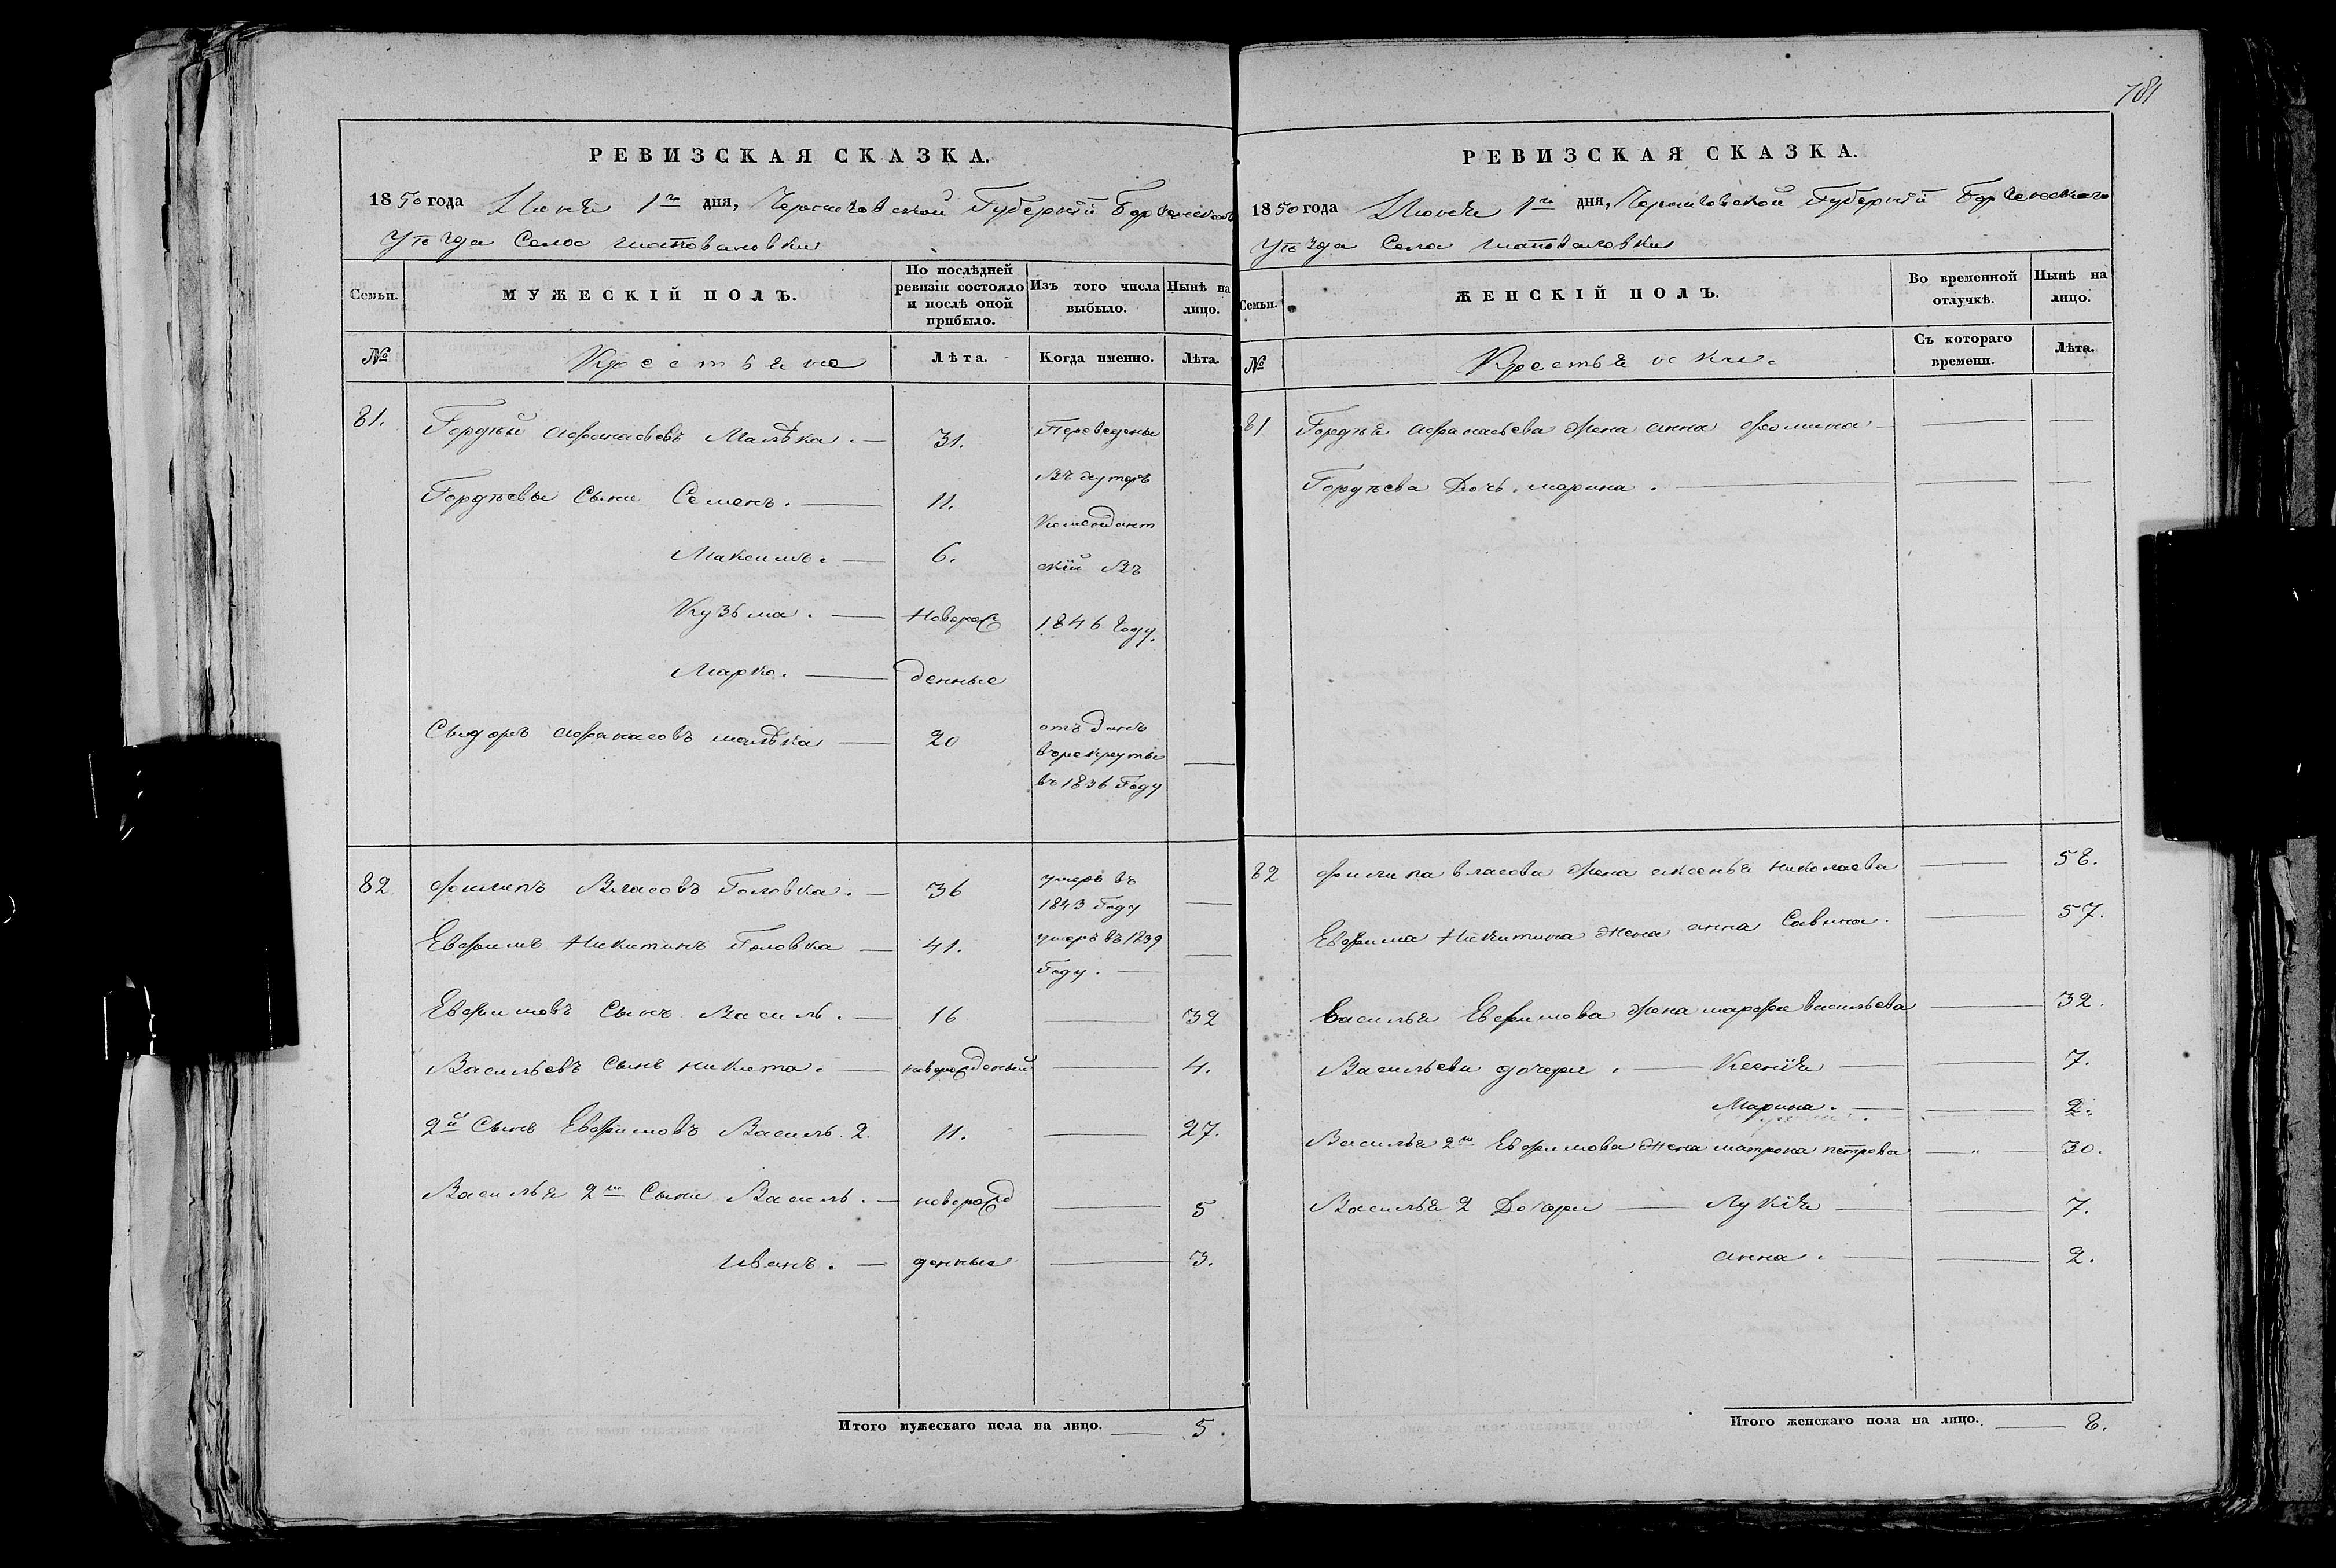 781
РЕВИЗСКАЯ СКАЗКА.
1850 года Июня 1го дня, Черниговской Губерніи Борзенскаго
Уѣзда Села Шаповаловки
Семьи.
МУЖЕСКІЙ ПОЛЪ.
По послѣдней ревизіи состояло и послѣ оной прибыло.
Изъ того числа выбыло.
Нынѣ на лицо.
№ Крестьяне Лѣта. Когда именно. Лѣта.
81. Гордѣй Афанасьевъ Малѣка. — 31. Переведены
Гордѣевы Сыни Семенъ. — 11. Въ хуторъ
Комендант
Максимъ. — 6. скій Въ
Кузьма. — Новорож 1846 Году.
Марко. — денные
Сыдоръ Афанасовъ малѣка — 20 отъданъ
въ рекруты —
въ 1836 Году
82. Филипъ Власовъ Головка. — 36 умеръ въ —
1843 Году
Евфимъ Никитинъ Головка — 41. умеръ въ 1839 —
Году. —
Евфимовъ Сынъ Василь. — 16 — 32
Васильевъ Сынъ никита. — новорожденый — 4.
2й Сынъ Евфимовъ Василь. 2. 11. — 27.
Василья 2го Сыни Василь. — новорожд — 5
иванъ. — денные — 3.
Итого мужескаго пола на лицо. — 5.
РЕВИЗСКАЯ СКАЗКА.
1850 года Июня 1го дня, Черниговской Губерніи Борзенскаго
Уѣзда Села Шаповаловки
Семьи.
ЖЕНСКІЙ ПОЛЪ.
Во временной отлучкѣ.
Нынѣ на лицо.
№ Крестьянки. Съ котораго времени. Лѣта.
81 Гордѣя Афанасьева Жена анна Фомина — — —
Гордѣева Дочь. марина. — — —
82 Филипа власова Жена аксенья николаева — 58.
Евфима Никитина Жена анна Савина. — 57.
Василья Евфимова Жена марфа васильева — 32.
Васильеви дочери. — Ксенія — — 7.
Марина. — — 2.
Василья 2го Евфимова Жена матрона петрова — " — 30.
Василья 2 Дочери — Лукія — — 7.
анна. — — 2.
Итого женскаго пола на лицо. — 8.